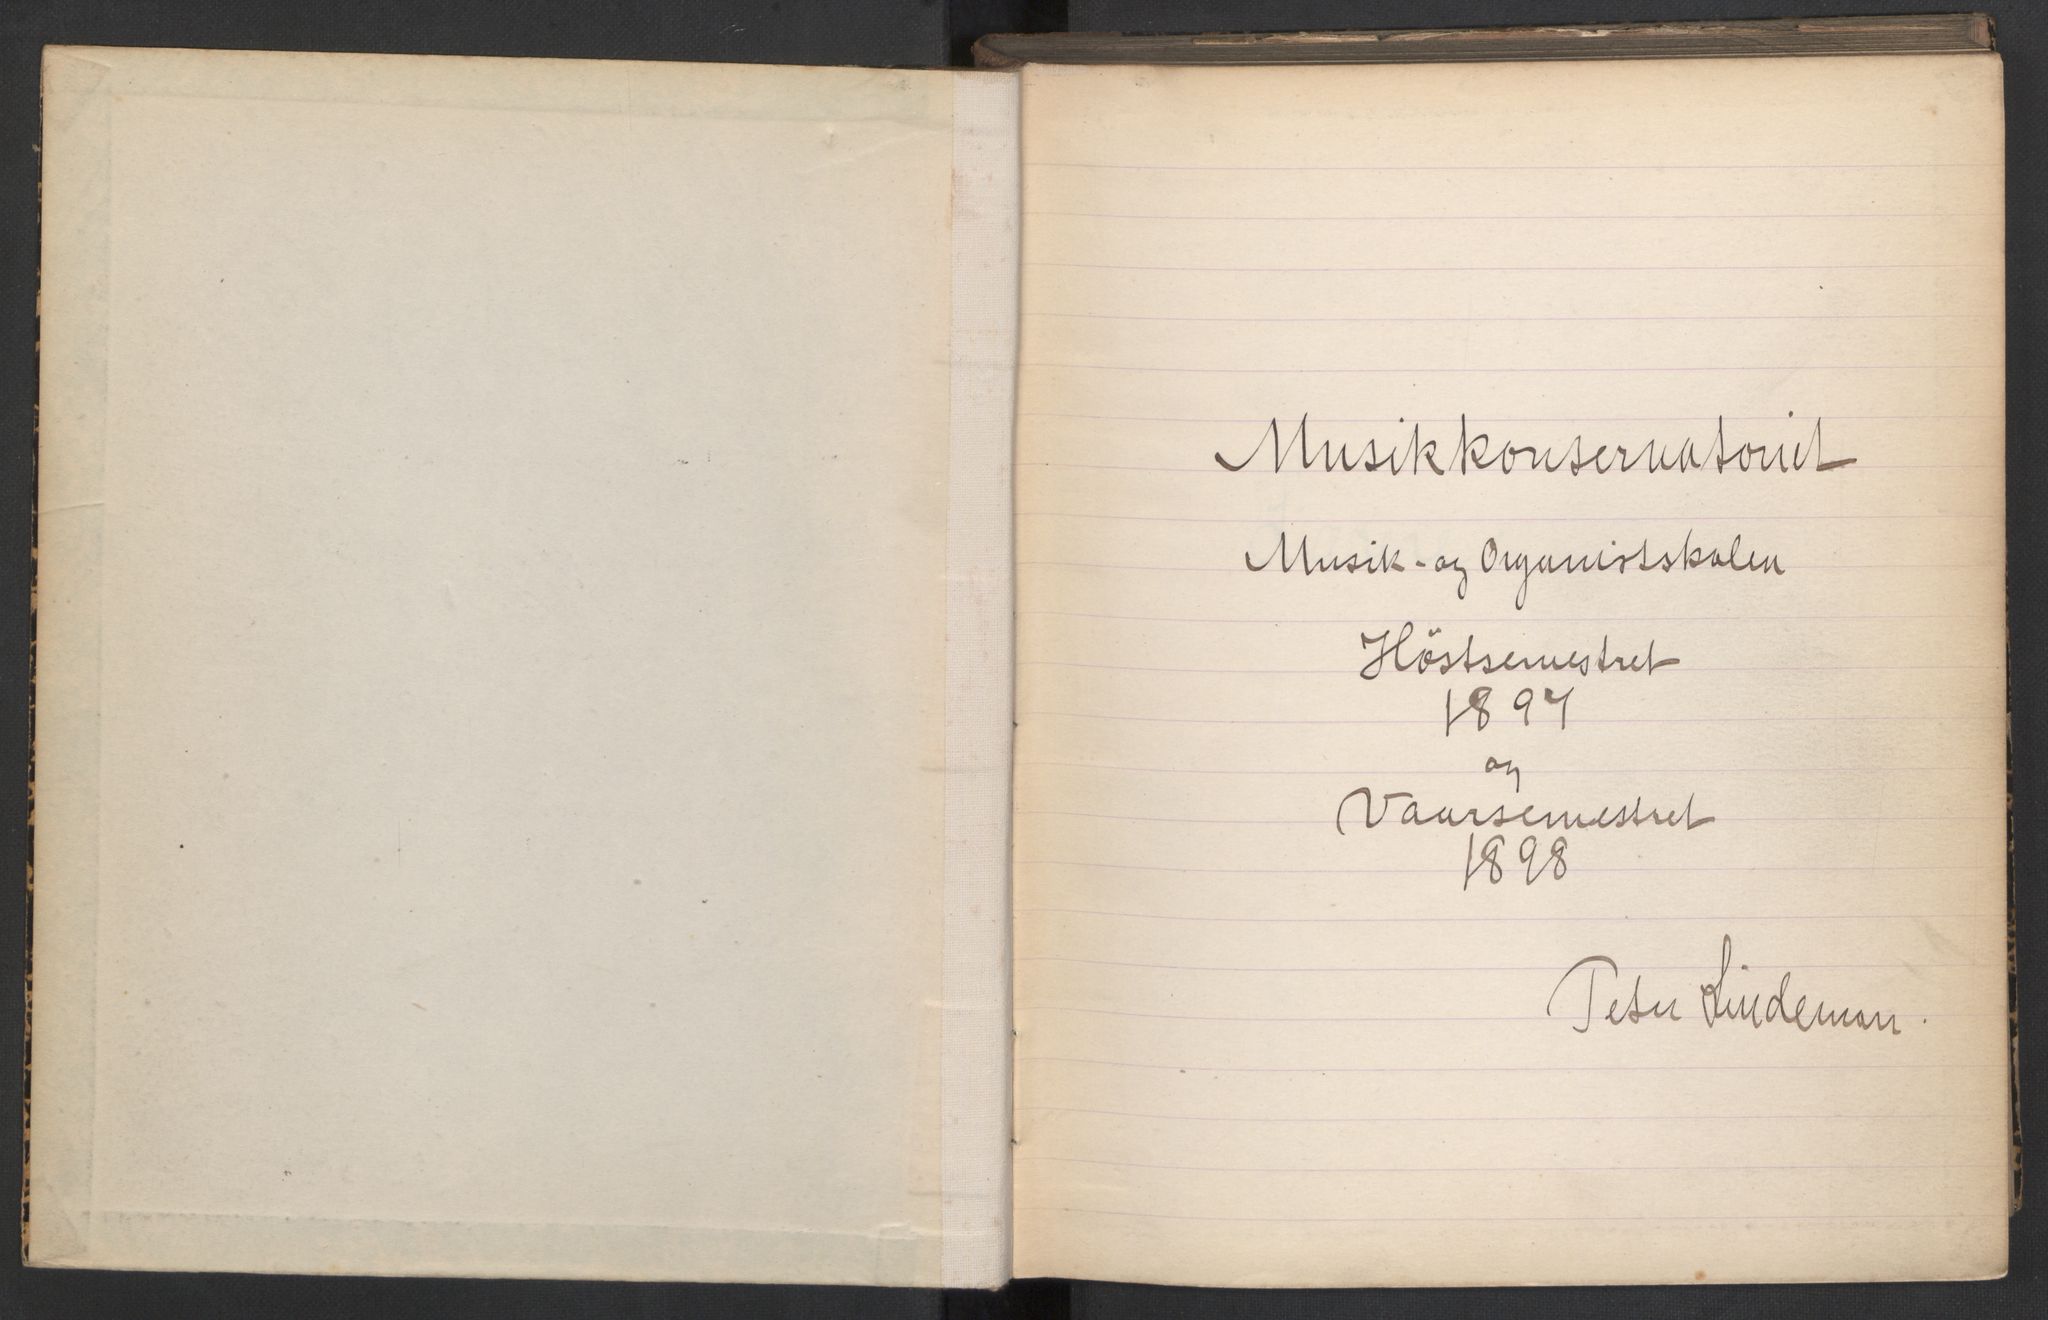 Musikkonservatoriet
Musik- og Organistskolen
Höstsemestret
1897
og
Vaarsemestret
1898
Peter Lindeman.